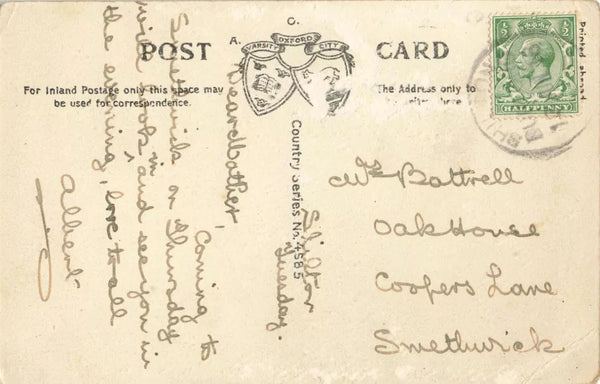 C.
A.
VARSITY OXFORD CITY
POST CARD
For Inland Postage only this space may
be used for correspondence.
The Address only to
here
Printed abroad
½ ½
HALFPENNY
Country Series No. 4585
Shilton
Tuesday.
Dear Mother,
Coming to
Smethwick on Thursday
will look in and see you in
the evening, love to all
Albert
Mrs Bottrell
Oak House
Coopers Lane
Smethwick